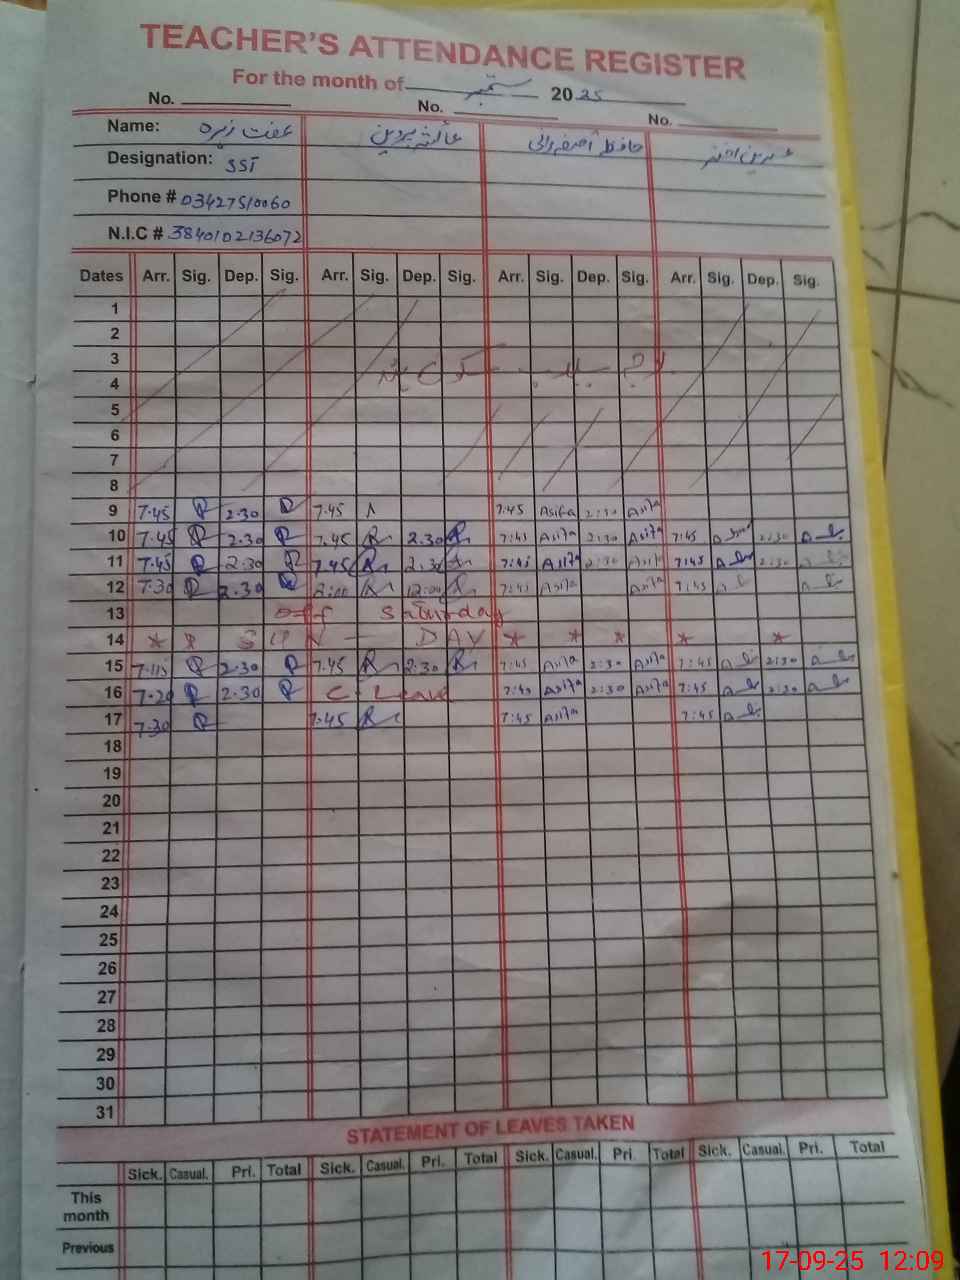 TEACHER'S ATTENDANCE REGISTER
For the month of ستمبر 2025
No. No. No.
Name: عفت زہرہ عائشہ پروین حافظہ آصفہ رانی
Designation: SST
Phone # 03427510060
N.I.C # 3840102136072
Dates Arr. Sig. Dep. Sig. Arr. Sig. Dep. Sig. Arr. Sig. Dep. Sig. Arr. Sig. Dep. Sig.
1
2
3
4
5
6
7
8
9 7.45 2.30 7.45 7:45 Asifa 2:30 Asifa
10 7.45 2.30 7.45 2.30 7:45 Asifa 2:30 Asifa 7:45 2:30
11 7.45 2.30 7.45 2.30 7:45 Asifa 2:30 Asifa 7:45 2:30
12 7.30 2.30 12:00 Asifa Asifa 7:45
13 off Saturday
14 * * SUN - DAY * * * * *
15 2.30 7.45 2.30 7:45 Asifa 2:30 Asifa 7:45 2:30
16 7.20 2.30 C-Leave 7:45 Asifa 2:30 Asifa 7:45 2:30
17 7.30 7.45 7:45 Asifa 7:45
18
19
20
21
22
23
24
25
26
27
28
29
30
31
STATEMENT OF LEAVES TAKEN
Sick. Casual. Pri. Total Sick. Casual. Pri. Total Sick. Casual. Pri. Total Sick. Casual. Pri. Total
This
month
Previous
17-09-25 12:09